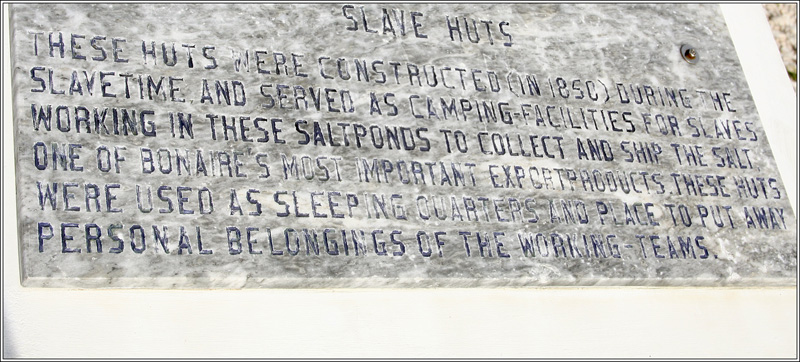 SLAVE HUTS
THESE HUTS WERE CONSTRUCTED (IN 1850) DURING THE
SLAVETIME, AND SERVED AS CAMPING-FACILITIES FOR SLAVES
WORKING IN THESE SALTPONDS TO COLLECT AND SHIP THE SALT
ONE OF BONAIRE'S MOST IMPORTANT EXPORTPRODUCTS. THESE HUTS
WERE USED AS SLEEPING QUARTERS AND PLACE TO PUT AWAY
PERSONAL BELONGINGS OF THE WORKING-TEAMS.